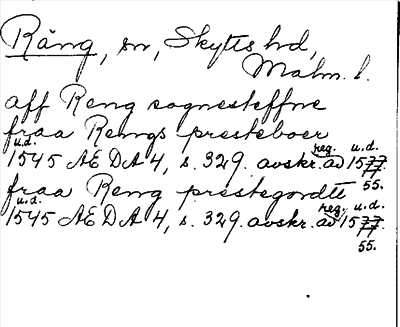 Räng, sn, Skytts hd,
Malm. l.
aff Reng sognesteffne
fraa Rengs presteboer
u.d. 1545 AEDA 4, s. 329. avskr. reg. av u.d. 1577
55.
fraa Reng prestegordt
u.d. 1545 AEDA 4, s. 329. avskr. reg. av u.d. 1577.
55.